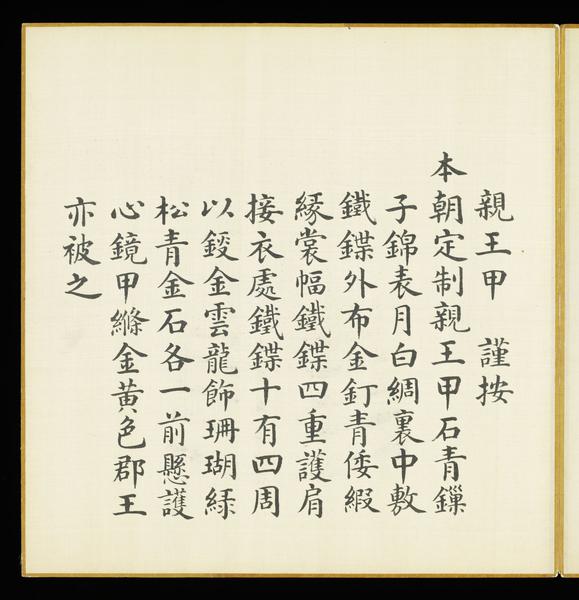 親王甲　謹按
本朝定制親王甲石青鏁
子錦表月白綢裏中敷
鐵鍱外布金釘青倭緞
緣裳幅鐵鍱四重護肩
接衣處鐵鍱十有四周
以鋄金雲龍飾珊瑚綠
松青金石各一前懸護
心鏡甲縧金黃色郡王
亦被之